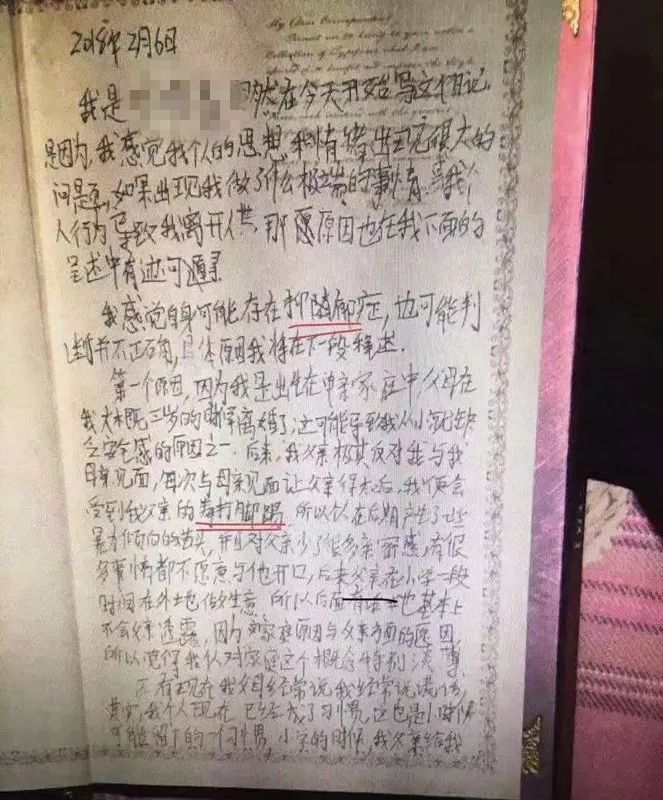 My Chère Correspondent
2018年2月6日
我是 然在今天开始写文信记,
是因为,我感觉我个人的思想和情绪出现很大的
问是,如果出现我做了什么极端的事情或我个
人行为导致我离开人世,那愿原因也在我下面的
呈述中有迹可遁寻
我感觉自身可能存在抑郁症,也可能判
断并不正确,具体原因我将在下一段释述.
第一个原因,因为我是出生在单亲家庭中,父母在
我大概三岁的时候离婚了,这可能导致我从小就缺
乏安全感的原因之一.后来,我父亲极其反对我与我
母亲见面,每次与母亲见面让父亲得知后,我便会
受到我父亲的拳打脚踢,所以我在后期产生了些
暴力倾向的苗头,并且对父亲少了很多亲密感,有很
多事情都不愿意与他开口,后来父亲在小学一段
时间在外地做生意.所以后面有 也基本上
不会父亲透露,因为 家庭原因与父亲方面的原因,
所以觉得我认对家庭这个概念特别淡薄.
还有现在我父母经常说我经常说谎话,
其实我个人现在已经成了习惯,这也是小时候
可能留下的一个习惯,小学的时候,我父亲给我